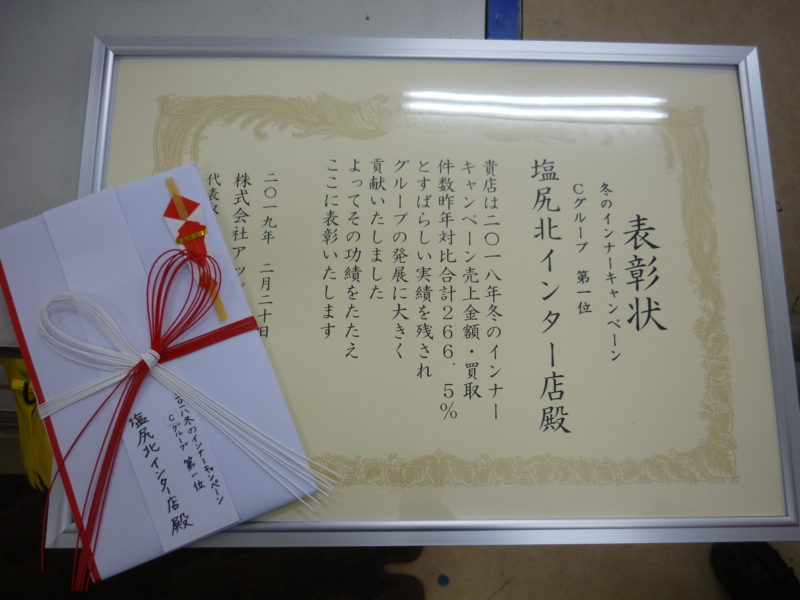 表彰状
冬のインナーキャンペーン
Cグループ 第一位
塩尻北インター店殿
貴店は二〇一八年冬のインナー
キャンペーン売上金額・買取
件数昨年対比合計266.5%
とすばらしい実績を残され
グループの発展に大きく
貢献いたしました
よってその功績をたたえ
ここに表彰いたします
二〇一九年 二月二十日
株式会社アッ
代表取
〇一八冬のインナーキャンペーン
Cグループ 第一位
塩尻北インター店殿